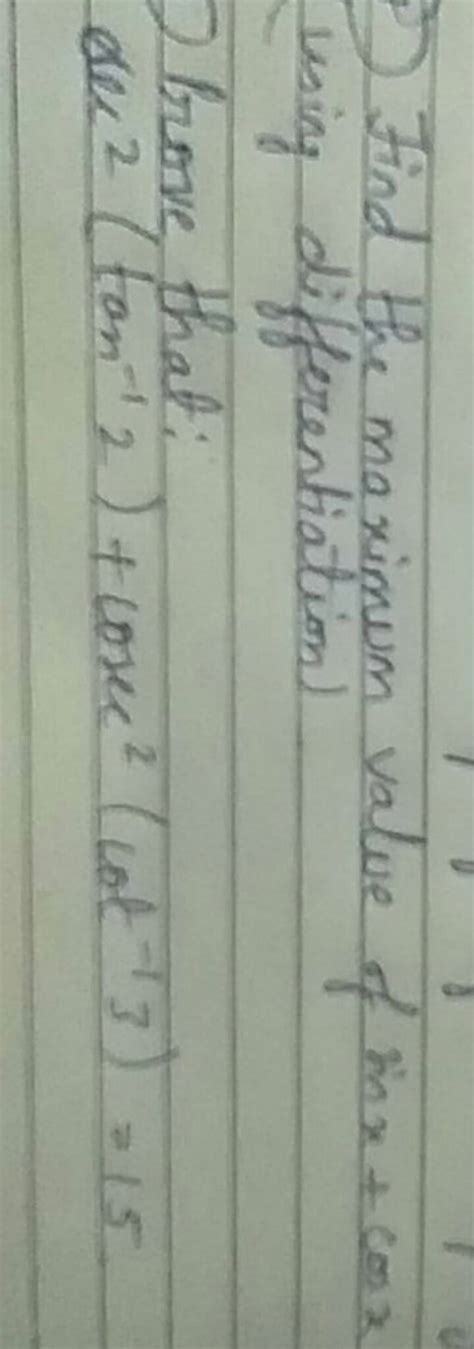 Find the maximum value of sin x + cos x
using differentiation)
Prove that:
sec² (tan⁻¹ 2) + cosec² (cot⁻¹ 3) = 15